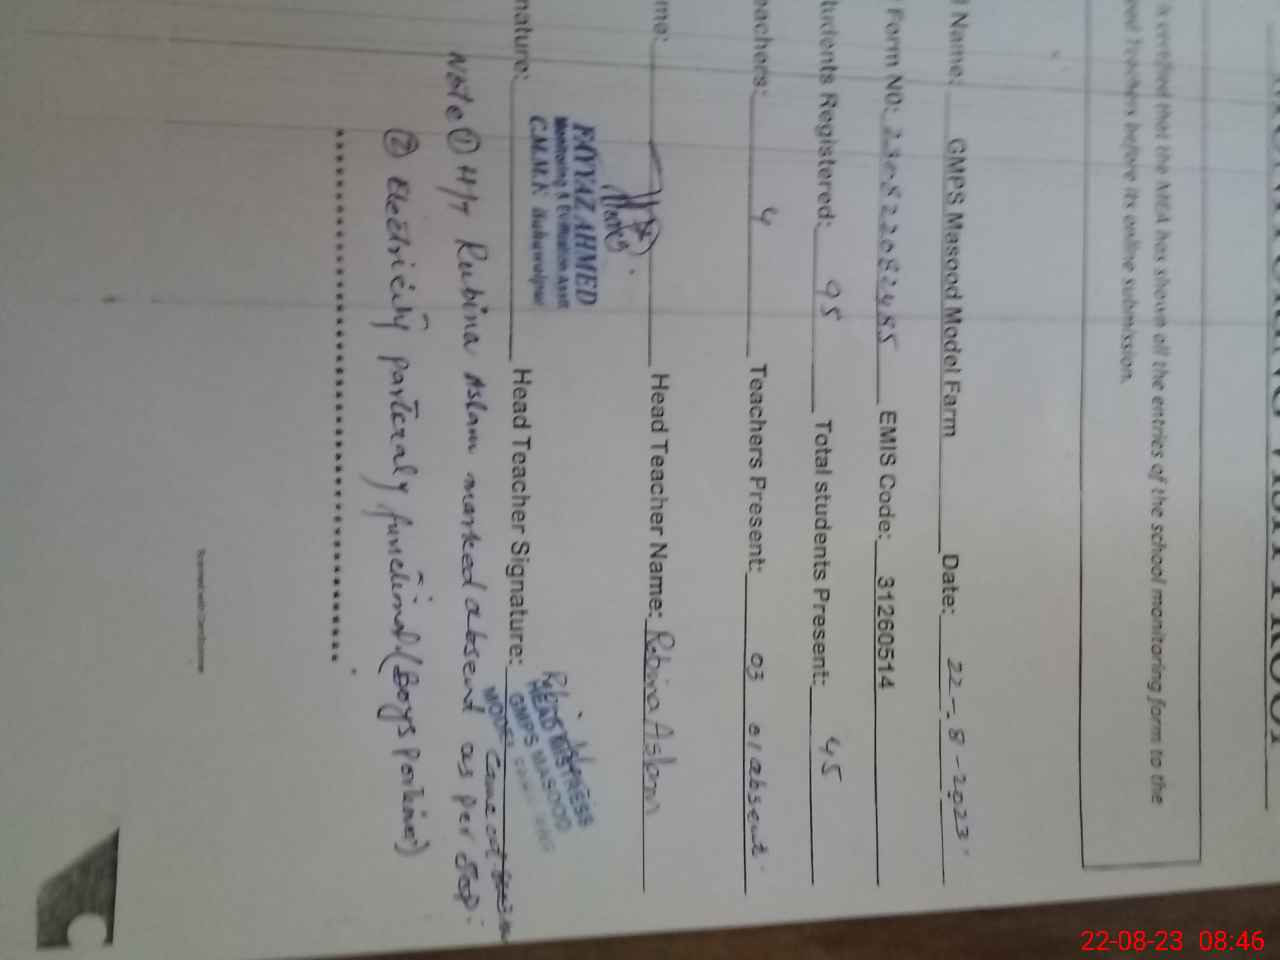 MONITORING VISIT PROOF
is verified that the MEA has shown all the entries of the school monitoring form to the
Head Teacher before its online submission.
Name: GMPS Masood Model Farm Date: 22-8-2023
Form NO: EMIS Code: 31260514
tudents Registered: 95 Total students Present: 45
eachers: 4 Teachers Present: 03 01 absent
me: Head Teacher Name: Robina Aslam
nature: Head Teacher Signature:
FAYYAZ AHMED
Monitoring & Evaluation Asstt
C.M.M.F. Bahawalpur
HEAD MISTRESS
GMPS MASOOD
MODEL
Came at
Note ① H/T Rubina Aslam marked absent as per SOP.
② Electricity parteraly functional (Boys Portion)
Scanned with CamScanner
22-08-23 08:46